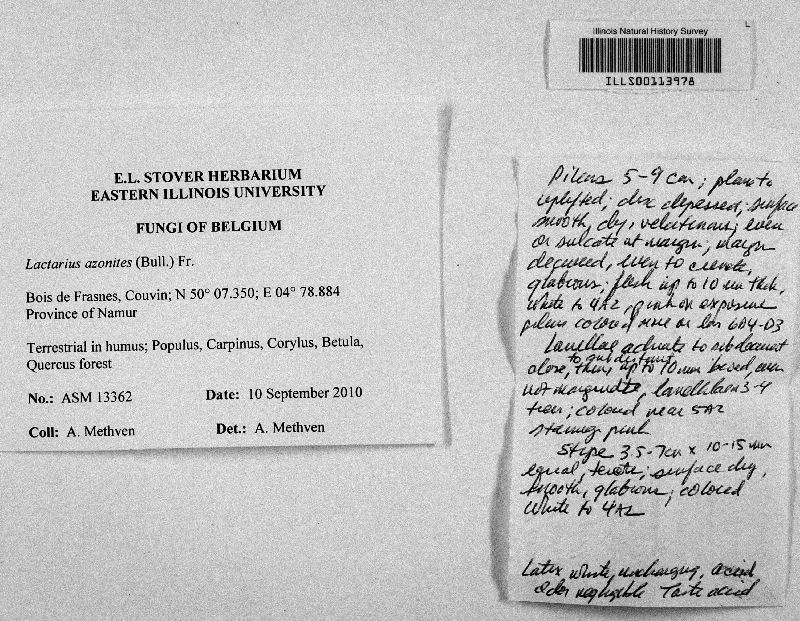 Illinois Natural History Survey
ILLS00113978
E.L. STOVER HERBARIUM
EASTERN ILLINOIS UNIVERSITY
FUNGI OF BELGIUM
Lactarius azonites (Bull.) Fr.
Bois de Frasnes, Couvin; N 50° 07.350; E 04° 78.884
Province of Namur
Terrestrial in humus; Populus, Carpinus, Corylus, Betula,
Quercus forest
No.: ASM 13362 Date: 10 September 2010
Coll: A. Methven Det.: A. Methven
Pileus 5-9 cm; plane to
uplifted; disc depressed; surface
smooth, dry, velutinous; even
or sulcate at margin; margin
decurved, even to crenate,
glabrous; flesh up to 10 mm thick,
white to 4A2, pink on exposure
pileus colored more or less 6D4-D3
Lamellae adnate to subdecurrent
close, to subdistant, thin, up to 10 mm broad, even
not marginate, lamellulae 3-4
tiers; colored near 5A2
staining pink
Stipe 3.5-7cm x 10-15 mm
equal, terete; surface dry,
smooth, glabrous; colored
white to 4A2
Latex white, unchanging, acrid
Odor negligible Taste acrid